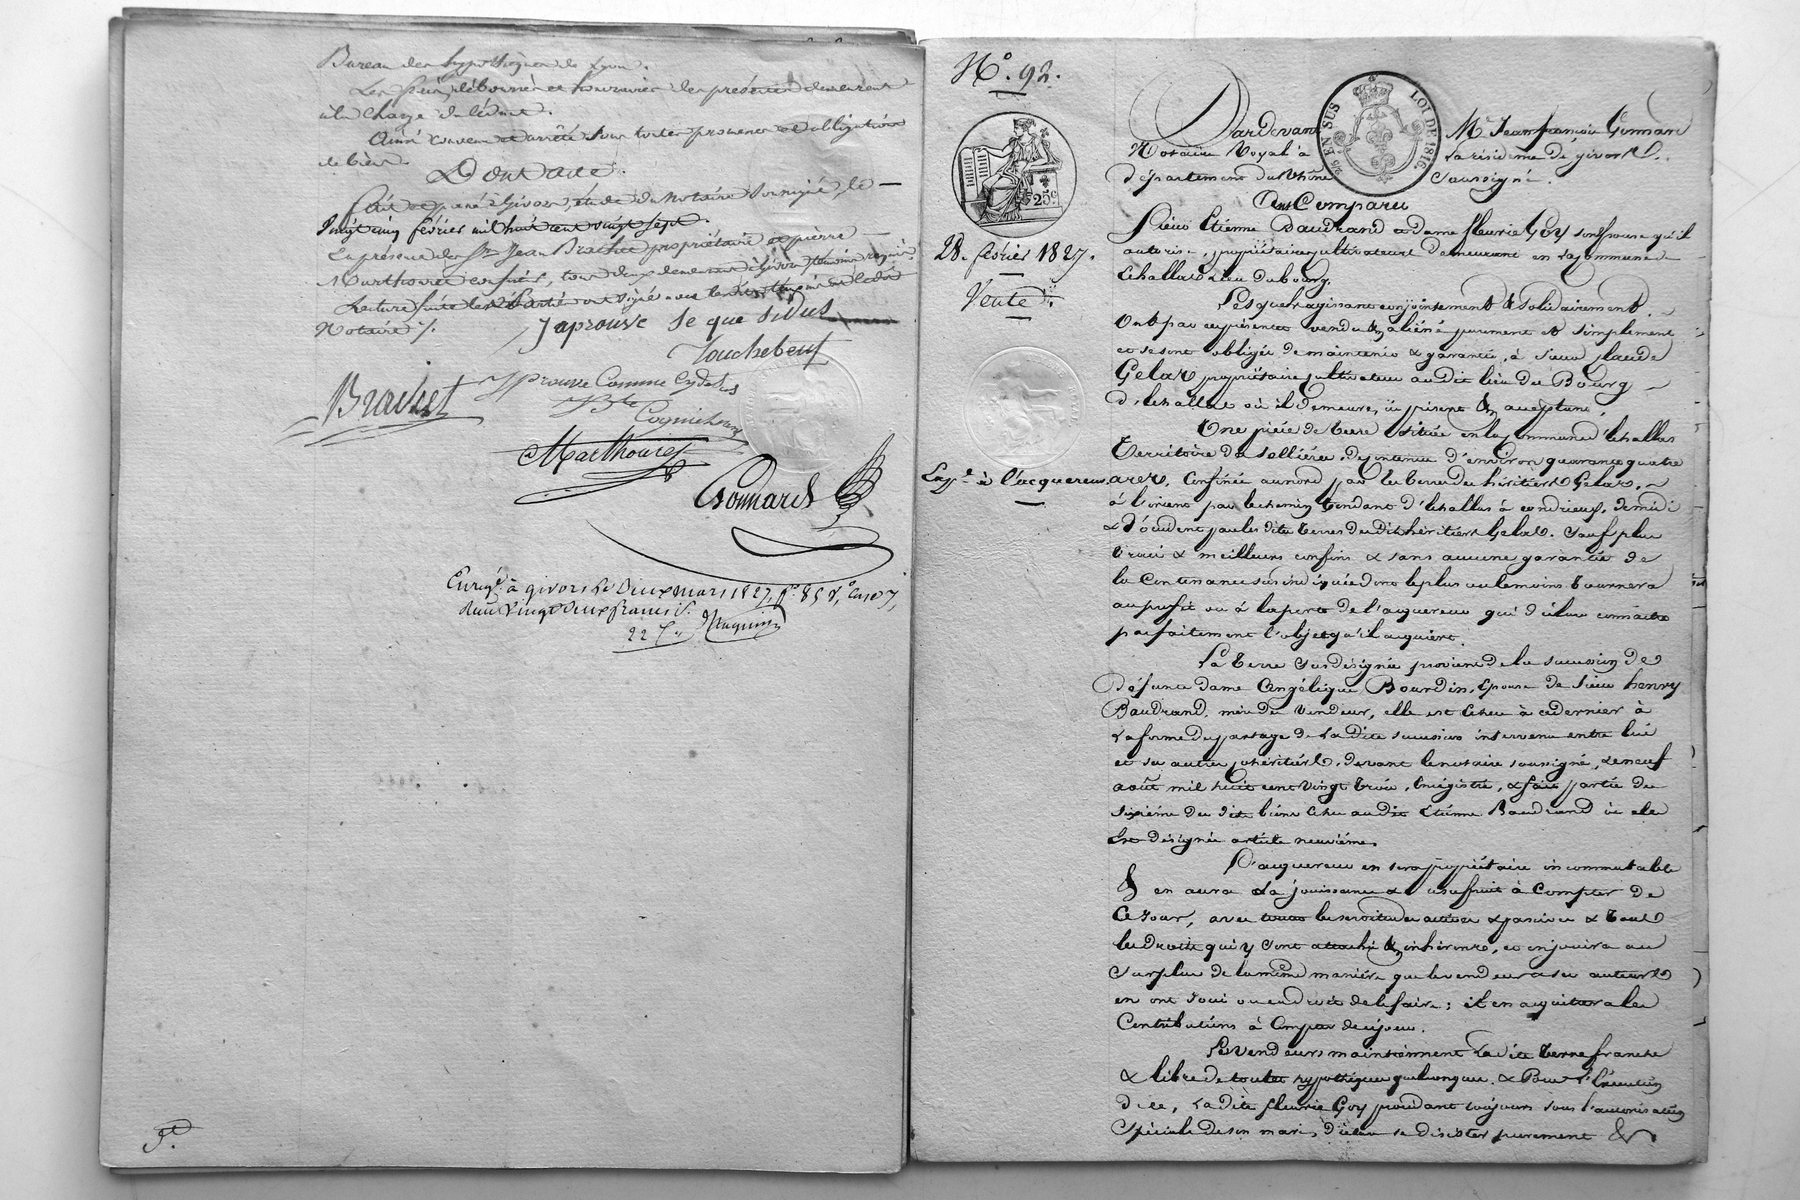 Bureau des hypothèques de Lyon.
Les frais, déboursés et honoraires des présentes demeurent
à la charge du cédant.
Ainsi convenu et arrêté sous toutes promesses et obligations
de biens
Dont acte.
Fait et passé à Givors, étude du Notaire soussigné, le —
Vingt cinq février mil huit cent vingt sept.
En présence des Srs Jean Brachet propriétaire et pierre —
Marthouret, tous deux demeurant à Givors témoins requis.
Lecture faite les ont signé avec les témoins et le dit
Notaire ./.
J'aprouve se que desus
Touchebeuf
Brachet
Japrouve Comme Cydesus
Marthouret
Gonnard
Enregé à givors le Deux Mars 1827, fo 85 Vo, Case 7,
Reçu Vingt deux francs
22 f
No. 92.
25c EN SUS LOI DE 1816
Pardevant Me Jean françois Gonnard
Notaire Royal à la résidence de givors.
département du Rhône soussigné.
Ont Comparu
25c
Sieur Etienne Baudrand et dame fleurie Goy son épouse qu'il
autorise, propriétaires cultivateurs demeurant en la commune
d'Echallas lieu du bourg.
28. février 1827.
Vente
Lesquels agissant conjointement & solidairement.
Ont par ces présentes vendu & aliéné purement et simplement
et se sont obligés de maintenir & garantir, à sieur claude
Gelas propriétaire cultivateur audit lieu du Bourg
d'échallas où il demeure, ici présent & acceptant,
Une pièce de terre située en la commune d'échallas
Territoire de Sollières, de contenue d'environ quarante quatre
Expé à l'acquereur
ares, Confinée au nord par les terres des héritiers Gelas.
à l'orient par le chemin tendant d'échallas à condrieux, de midi
& d'occident par les dites terres desdits héritiers Gelas. Sauf plus
vrais & meilleurs confins & sans aucune garantie de
la Contenance sus indiquée dont le plus ou le moins tournera
au profit ou à la perte de l'acquereur qui déclare connaitre
parfaitement l'objet qu'il acquiert.
La terre sus désignée provient de la succession de
Défunte dame Angélique Bourdin, Epouse de sieur henry
Baudrand, mère du vendeur, elle est échue à ce dernier à
la forme du partage de la dite succession intervenu entre lui
et ses autres cohéritiers, devant le notaire soussigné, le neuf
août mil huit cent vingt trois, enregistré, & fait partie du
sixième des dits biens échu audit Etienne Baudrand où elle
est désignée article neuvième.
L'acquereur en sera propriétaire incommutable
& en aura la jouissance & usufruit à compter de
Ce jour, avec toutes les servitudes actives & passives & tous
les droits qui y sont attachés & inhérents, et en jouira au
surplus de la même manière que les vendeurs & ses auteurs
en ont joui ou eu droit de le faire; il en acquittera les
Contributions à Compter de ce jour.
Les Vendeurs maintiennent la dite terre franche
& libre de toutes hypothèques quelconques. & Pour l'exécution
d'ice, la dite fleurie Goy procédant toujours sous l'autorisation
spéciale de son mari, déclare se désister purement &